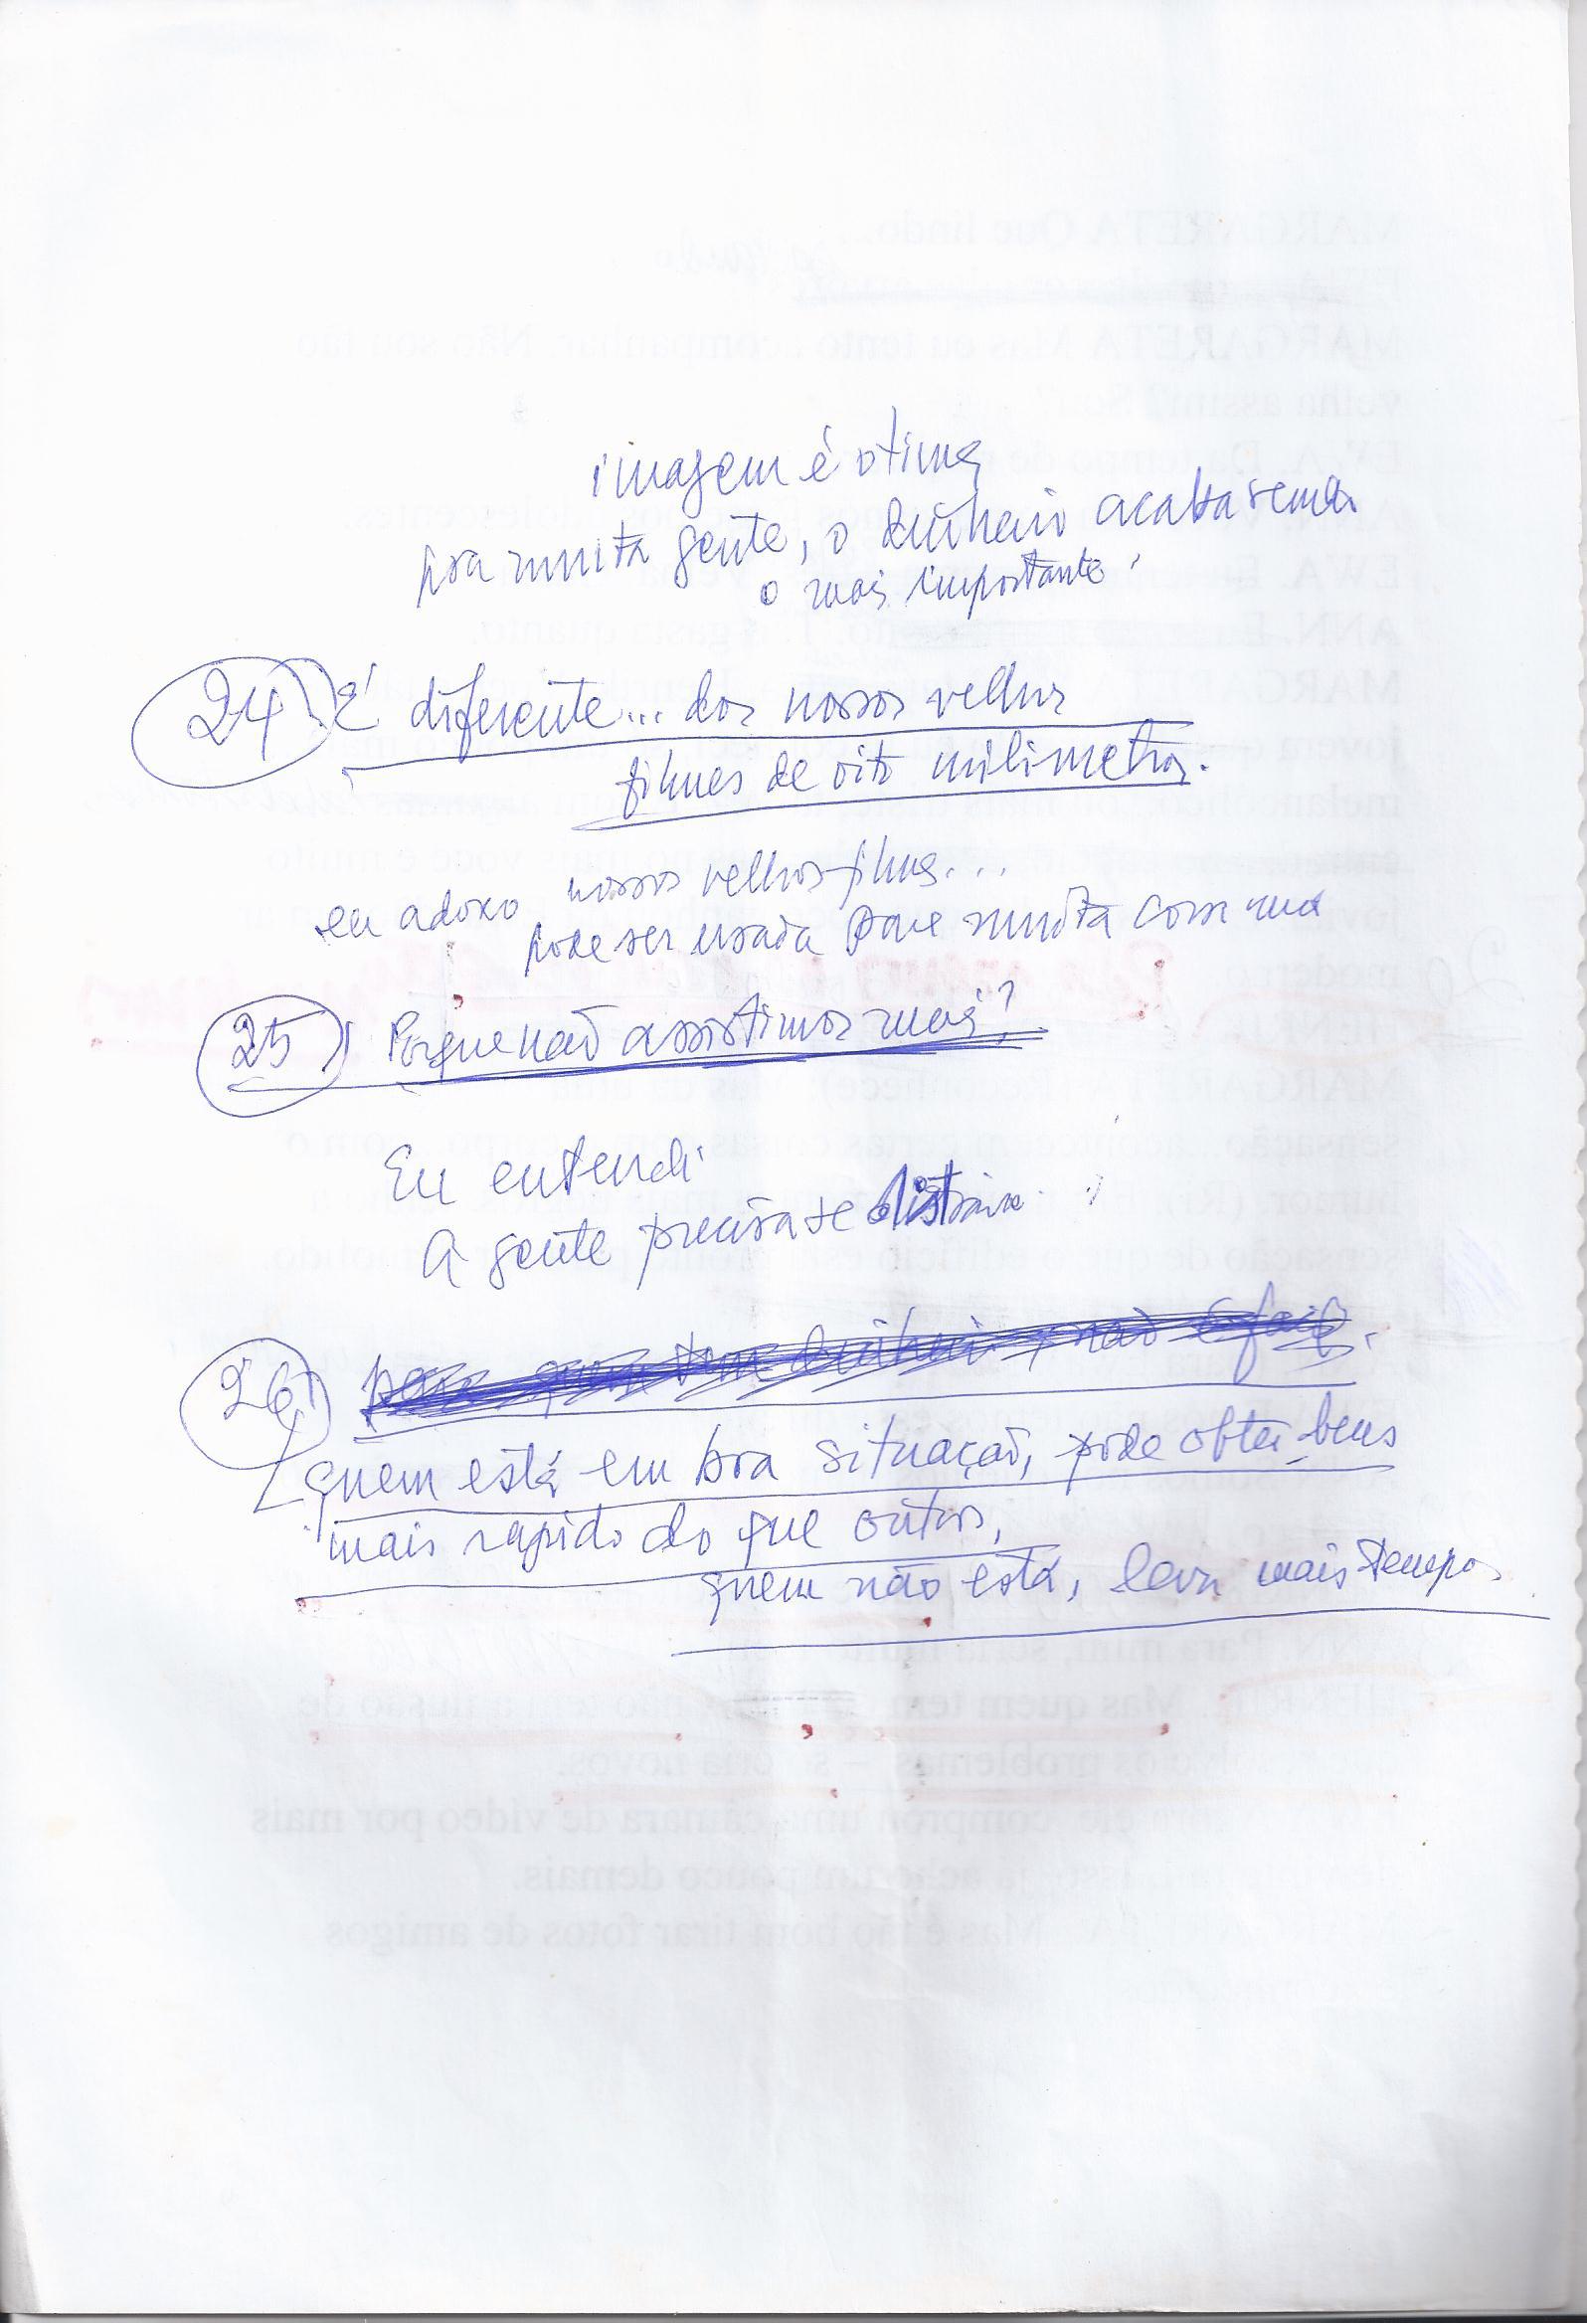 imagem é otima
pra muita gente, o dinheiro acaba sendo
o mais importante
24) É diferente... dos nossos velhos
filmes de oito milimetros.
nossos velhos filmes...
eu adoro
pode ser usada para muita coisa
25) Porque não assistimos mais?
Eu entendi
A gente precisa se distrair
26) para quem tem dinheiro, não é fácil.
quem está em boa situação, pode obter bens
mais rapido do que outros,
quem não está, leva mais tempo.